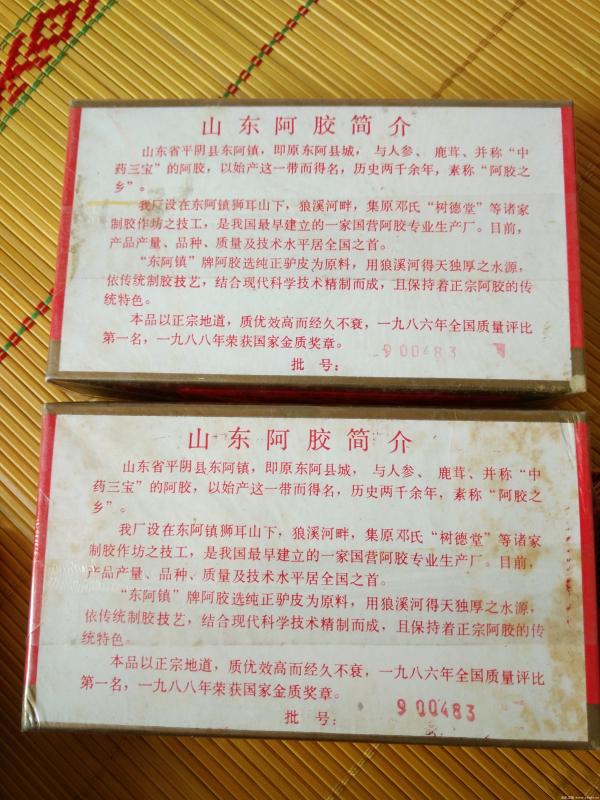 山东阿胶简介
山东省平阴县东阿镇，即原东阿县城，与人参、鹿茸、并称“中
药三宝”的阿胶，以始产这一带而得名，历史两千余年，素称“阿胶之
乡”。
我厂设在东阿镇狮耳山下，狼溪河畔，集原邓氏“树德堂”等诸家
制胶作坊之技工，是我国最早建立的一家国营阿胶专业生产厂。目前，
产品产量、品种、质量及技术水平居全国之首。
“东阿镇”牌阿胶选纯正驴皮为原料，用狼溪河得天独厚之水源，
依传统制胶技艺，结合现代科学技术精制而成，且保持着正宗阿胶的传
统特色。
本品以正宗地道，质优效高而经久不衰，一九八六年全国质量评比
第一名，一九八八年荣获国家金质奖章。
900483
批号：
山东阿胶简介
山东省平阴县东阿镇，即原东阿县城，与人参、鹿茸、并称“中
药三宝”的阿胶，以始产这一带而得名，历史两千余年，素称“阿胶之
乡”。
我厂设在东阿镇狮耳山下，狼溪河畔，集原邓氏“树德堂”等诸家
制胶作坊之技工，是我国最早建立的一家国营阿胶专业生产厂。目前，
产品产量、品种、质量及技术水平居全国之首。
“东阿镇”牌阿胶选纯正驴皮为原料，用狼溪河得天独厚之水源，
依传统制胶技艺，结合现代科学技术精制而成，且保持着正宗阿胶的传
统特色。
本品以正宗地道，质优效高而经久不衰，一九八六年全国质量评比
第一名，一九八八年荣获国家金质奖章。
900483
批号：